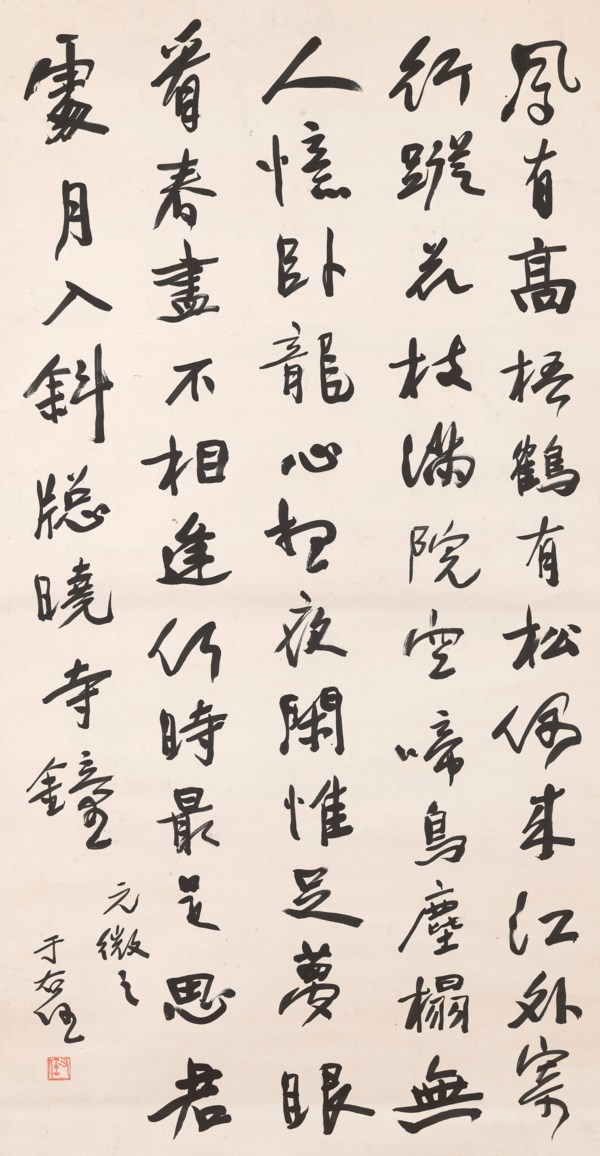 鳳有高梧鶴有松偶来江外寄
行蹤花枝滿院空啼鳥塵榻無
人憶卧龍心想夜閑惟足夢眼
看春盡不相逢何時最是思君
處月入斜牕曉寺鐘
元微之
于右任
右任